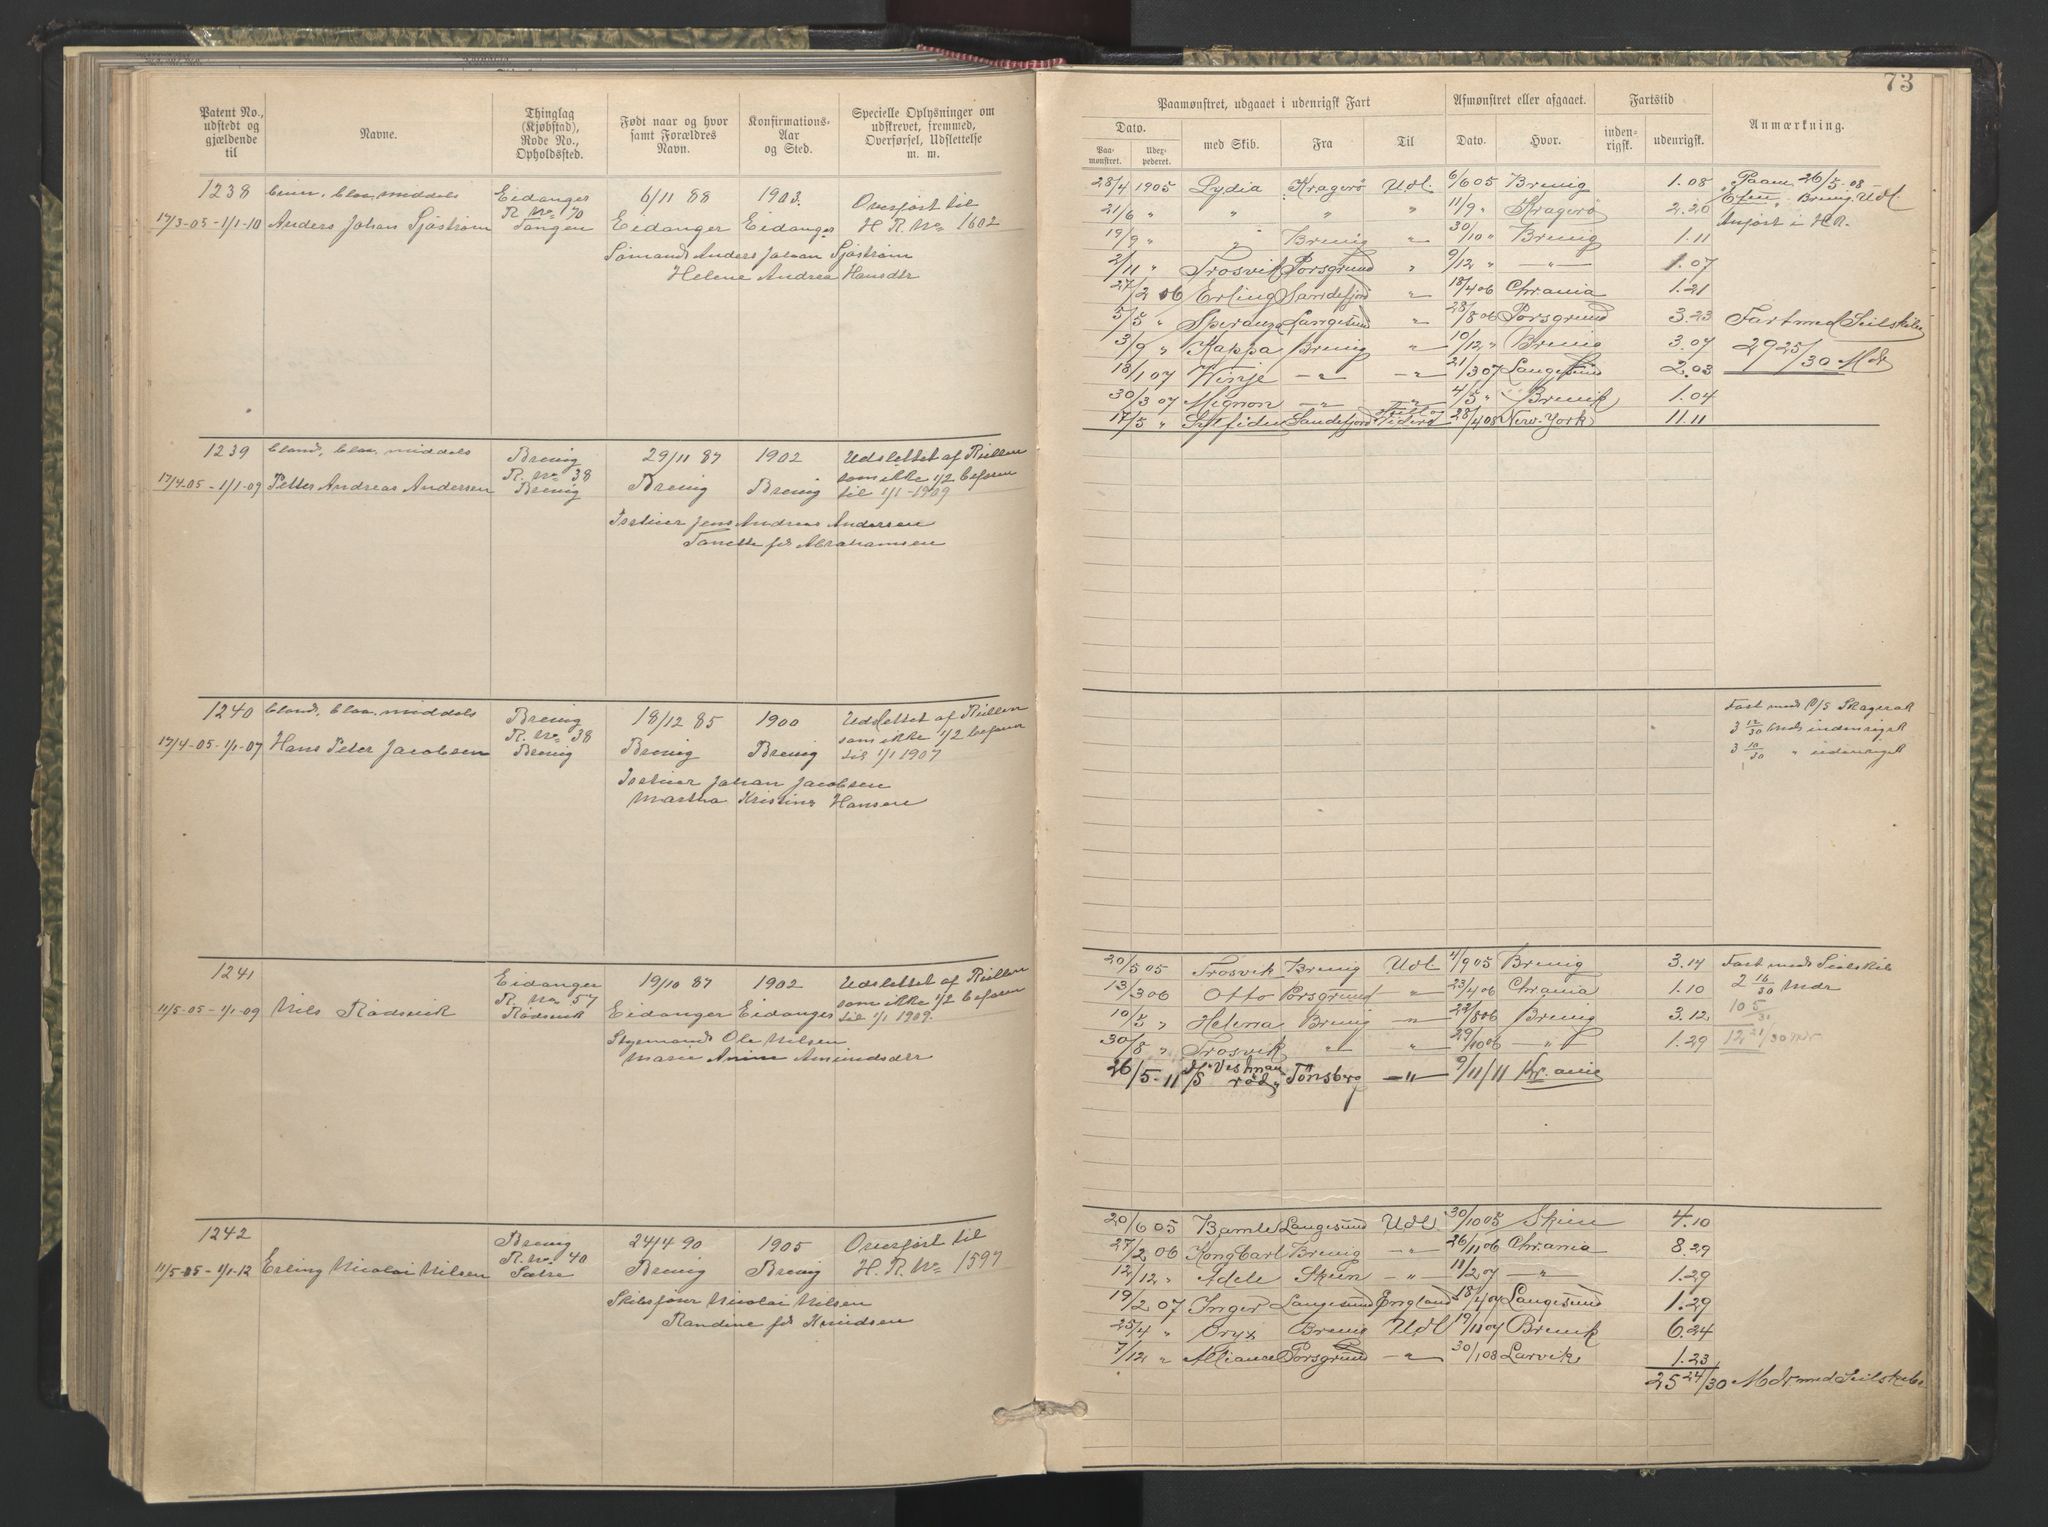 73
Patent No., udstedt og gjældende til
Navne.
Thinglag (Kjøbstad), Rode No., Opholdssted.
Født naar og hvor samt Forældres Navn.
Konfirmations-Aar og Sted.
Specielle Oplysninger om udskrevet, fremmed, Overførsel, Udslettelse m. m.
Paamønstret, udgaaet i udenrigsk Fart
Afmønstret eller afgaaet.
Fartstid
Anmærkning.
Dato.
Paamønstret.
Udexpederet.
med Skib.
Fra
Til
Dato.
Hvor.
indenrigsk.
udenrigsk.
1238
blaa, middels
Eidanger
6/11 88
1903.
Overført til
17/3-05-1/1-10 Anders Johan Sjøstrøm
R. No 70
Tangen
Eidanger
Eidanger
H. R. No 1602
Sømand Anders Johan Sjøstrøm
Helene Andrea Hansdtr
28/4 1905 Lydia Kragerø Udl. 6/6 05 Brevig 1.08
21/6 " " " " 11/9 " Kragerø 2.20
19/9 " " Brevig " 30/10 " Brevig 1.11
2/11 " Trosvik Porsgrund " 9/12 " —"— 1.07
27/2 06 Erling Sandefjord " 18/4 06 Chrania 1.21
5/5 " Speranza Langesund " 28/8 06 Porsgrund 3.23
3/9 " Kappa Brevig " 10/12 " Brevig 3.07
18/1 07 Winje —"— —"— 21/3 07 Langesund 2.03
30/3 07 Mignon —"— " 4/5 " Brevik 1.04
17/5 " Sylfiden Sandefjord 28/4 08 New-York 11.11
Paam 26/5-08
Brevig Udl.
Anført i H.R.
Fart med Seilskibe
29 25/30 Mdr
1239
blond, blaa, middels
Brevig
29/11 87
1902
Udslettet af Rullen
17/4-05-1/1-09 Petter Andreas Andersen
R. No 38
Brevig
Brevig
Brevig
som ikke 1/2 befaren
til 1/1-1909
Jens Andreas Andersen
Tanette fd Abrahamsen
1240
blond, blaa, middels
Brevig
18/12 85
1900
Udslettet af Rullen
17/4-05-1/1-07 Hans Peter Jacobsen
R. No 38
Brevig
Brevig
Brevig
som ikke 1/2 befaren
til 1/1 1907
Johan Jacobsen
Martha Kristine Hansen
Fart med D/S Skagerak
3 12/30 Mdr indenrigsk
3 10/30 " udenrigsk
1241
Eidanger
19/10 87
1902
Udslettet af Rullen
11/5-05-1/1-09 Nils Rødsvik
R. No 57
Rødsvik
Eidanger
Eidanger
som ikke 1/2 befaren
til 1/1 1909.
Styrmand Ole Nilsen
Maren Anine Amundsdtr
20/5 05 Trosvik Brevig Udl 4/9 05 Brevig 3.14
13/3 06 Otto Porsgrund " 23/4 06 Chrania 1.10
10/5 " Helena Brevig " 22/8 06 Brevig 3.12
30/8 " Trosvik " " 29/10 06 —"— 1.29
26/5-11 Tønsberg —"— 9/11/11 Kr.ania
Fart med Seilskib
2 16/30 Mdr
10 5
12 21/30 Mdr
1242
Brevig
24/4 90
1905
Overført til
11/5-05-1/1-12 Erling Nicolai Nilsen
R. No 40
Brevig
Brevig
H. R. No 1597
Skibsfører Nicolai Nilsen
Randine fd Knudsen
20/6 05 Bamle Langesund Udl 30/10 05 Skien 4.10
27/2 06 Kong Carl Brevig —"— 26/11 06 Chrania 8.29
12/12 " Adele Skien —"— 11/2 07 —"— 1.29
19/2 07 Inger Langesund England 18/4 07 Langesund 1.29
25/4 " Oryx Brevig Udl 19/11 07 Brevik 6.24
7/12 " Alliance Porsgrund —"— 30/1 08 Larvik 1.23
25 24/30 Mdr med Seilskibe